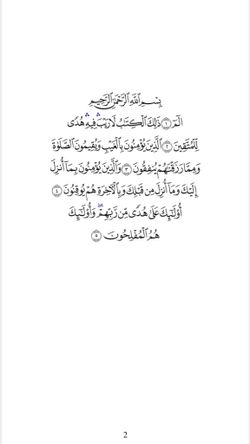 بِسْمِ اللَّهِ الرَّحْمَٰنِ الرَّحِيمِ
الٓمٓ ۝١ ذَٰلِكَ الْكِتَٰبُ لَا رَيْبَ ۛ فِيهِ ۛ هُدًى
لِّلْمُتَّقِينَ ۝٢ الَّذِينَ يُؤْمِنُونَ بِالْغَيْبِ وَيُقِيمُونَ الصَّلَوٰةَ
وَمِمَّا رَزَقْنَٰهُمْ يُنفِقُونَ ۝٣ وَالَّذِينَ يُؤْمِنُونَ بِمَآ أُنزِلَ
إِلَيْكَ وَمَآ أُنزِلَ مِن قَبْلِكَ وَبِالْءَاخِرَةِ هُمْ يُوقِنُونَ ۝٤
أُو۟لَٰٓئِكَ عَلَىٰ هُدًى مِّن رَّبِّهِمْ ۖ وَأُو۟لَٰٓئِكَ
هُمُ الْمُفْلِحُونَ ۝٥
2